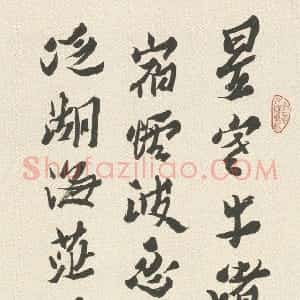 星牛渚
宿煙波忽
泛湖海茫
Shufaziliao.com